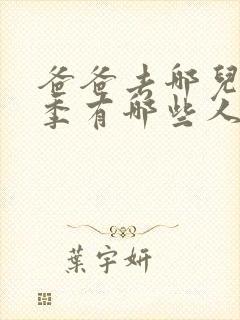 爸爸去哪兒
季有哪些人
葉宇妍